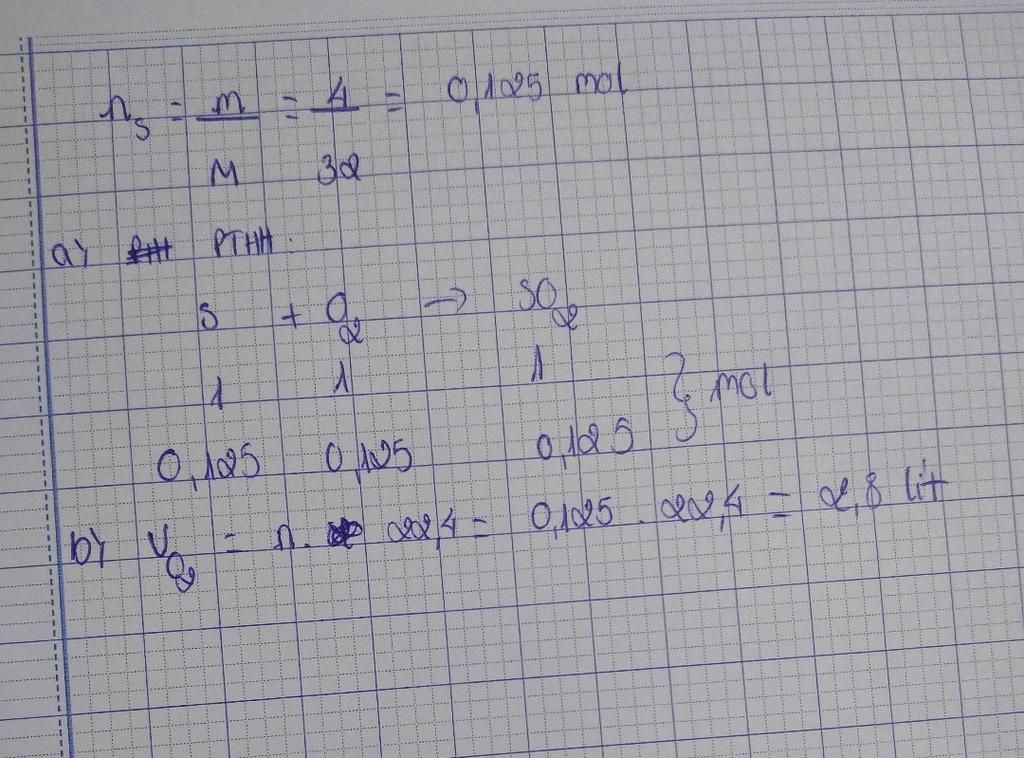 n_S = m/M = 4/32 = 0,125 mol
a) PTHH:
S + O₂ → SO₂
1 1 1
0,125 0,125 0,125 } mol
b) V_O₂ = n. 22,4 = 0,125 . 22,4 = 2,8 lít